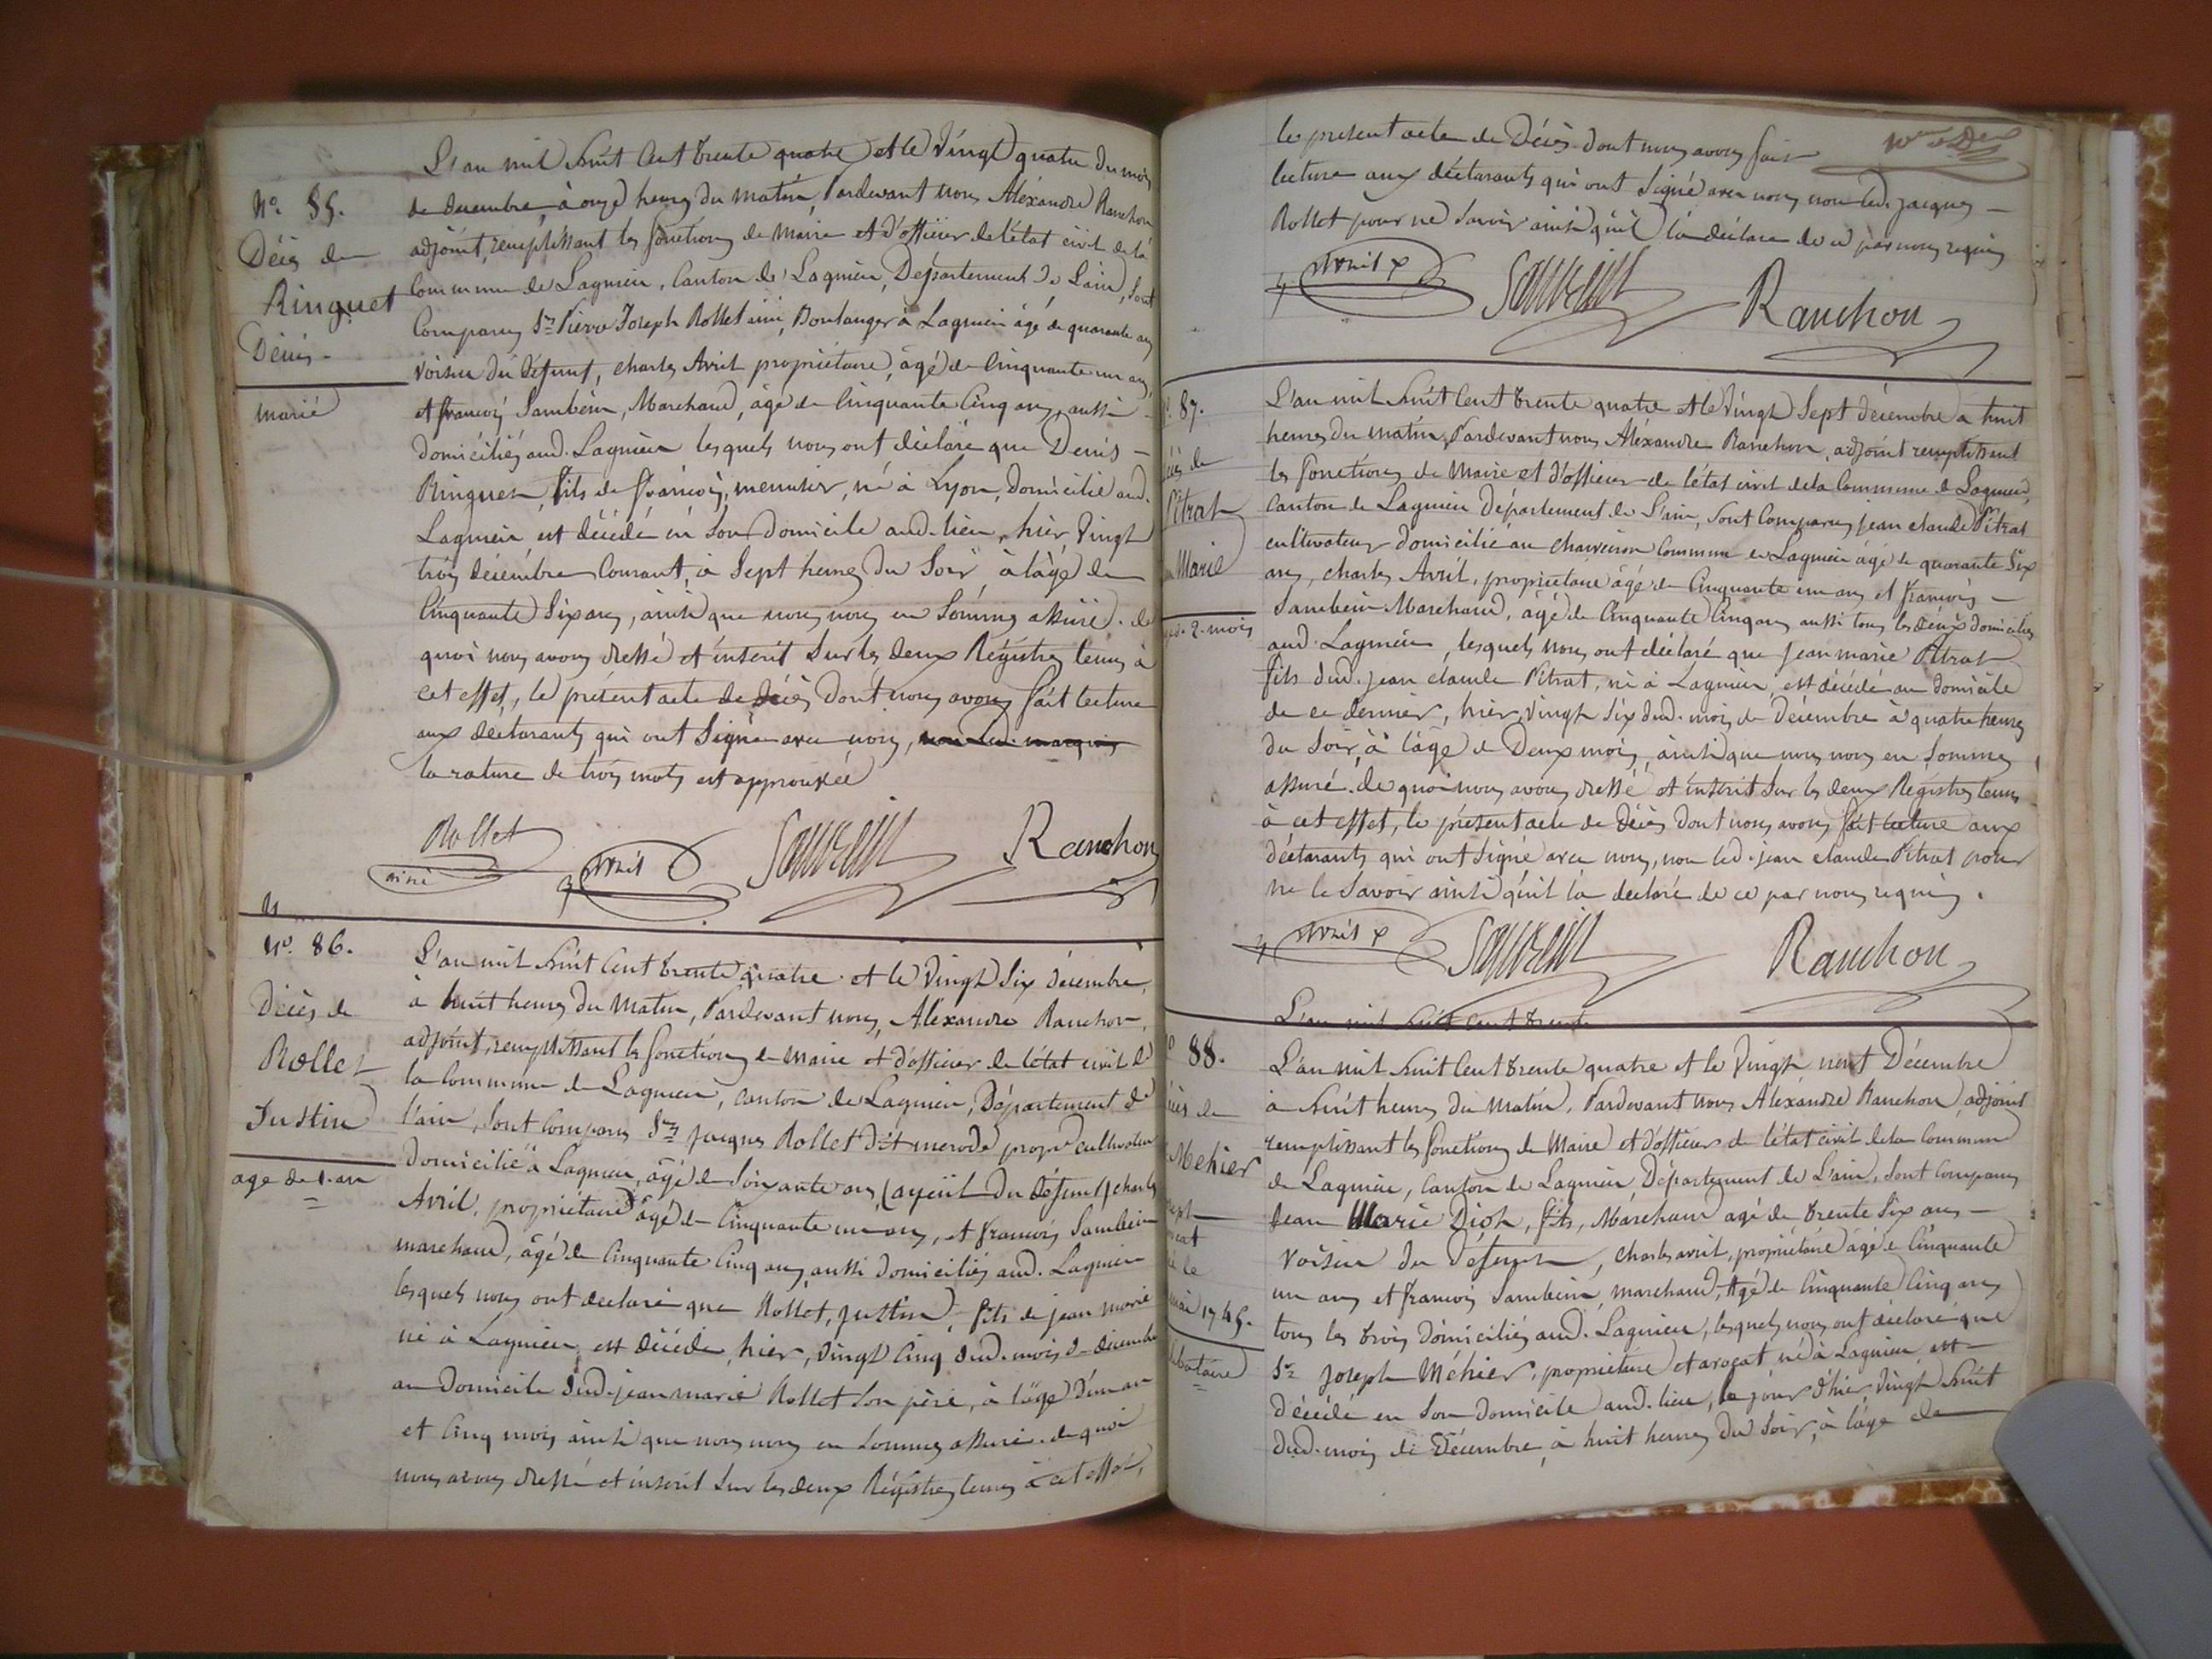 N.o 85.
Décès de
Ringuet
Dénis.
marié
L'an mil huit Cent trente quatre et le Vingt quatre du mois
de decembre, à onze heures du matin, Pardevant nous Aléxandre Ranchon
adjoint, remplissant les fonctions de maire et d'officier de l'état civil de la
Commune de Lagnieu, Canton de Lagnieu, Département de L'ain, sont
Comparus Sr. Pierre Joseph Rollet ainé, Boulanger à Lagnieu âgé de quarante ans
voisin du défunt, charles Avril propriétaire, âgé de Cinquante un ans,
et françois Sambein, Marchand, âgé de Cinquante Cinq ans, aussi
domiciliés aud. Lagnieu lesquels nous ont déclaré que Denis -
Ringuet, fils de françois, menuisier, né à Lyon, domicilié aud.
Lagnieu est décédé en son domicile aud. lieu, hier Vingt
trois décembre Courant, à Sept heures du Soir, à l'âge de
Cinquante Six ans, ainsi que nous nous en sommes assuré. de
quoi nous avons dressé et inscrit sur les deux Régistres tenus à
cet effet, le présent acte de décès Dont nous avons fait lecture
aux déclarants qui ont signé avec nous, non led. marquis
la rature de trois mots est approuvée
Rollet
ainé
Avril Sambein Ranchon
N.o 86.
Décès de
Rollet
Justin
age de 1. an
L'an mil huit Cent trente quatre et le Vingt Six décembre,
à huit heures du Matin, Pardevant nous, Aléxandre Ranchon,
adjoint, remplissant les fonctions de maire et d'officier de l'état civil de
la Commune de Lagnieu, canton de Lagnieu, Département de
l'ain, sont comparus Sr. Jacques Rollet dit merode propre. cultivateur
domicilié à Lagnieu, âgé de Soixante ans, (ayeul du défunt) charles
Avril, propriétaire âgé de Cinquante un ans, et françois Sambein
marchand, âgé de Cinquante Cinq ans, aussi domiciliés aud. Lagnieu
lesquels nous ont déclaré que Rollet, Justin, fils de jean marie
né à Lagnieu, est décédé, hier, Vingt Cinq dud. mois de décembre
au domicile dud. jean marie Rollet son père, à l'âge d'un an
et Cinq mois ainsi que nous nous en sommes assuré. de quoi
nous avons dressé et inscrit sur les deux Régistres tenus à cet effet,
le present acte de Décès dont nous avons fait
lecture aux déclarants qui ont signé avec nous, non led. jacques -
Rollet pour ne savoir ainsi qu'il l'a déclaré de ce par nous requis
Avril Sambein Ranchon
87.
Pitrat
Marie
2. mois
L'an mil huit Cent trente quatre et le Vingt Sept décembre à huit
heures du matin, Pardevant nous Aléxandre Ranchon, adjoint remplissant
les fonctions de Maire et d'officier de l'état civil de la Commune de Lagnieu,
Canton de Lagnieu Département de L'ain, sont Comparus jean claude Pitrat
cultivateur domicilié au commune de Lagnieu âgé de quarante Six
ans, charles Avril, propriétaire âgé de Cinquante un ans et françois -
Sambein Marchand, âgé de Cinquante Cinq ans aussi tous les deux domiciliés
aud. Lagnieu, lesquels nous ont déclaré que jean marie Pitrat
fils dud. jean claude Pitrat, né à Lagnieu, est décédé au domicile
de ce dernier, hier Vingt Six dud. mois de décembre à quatre heures
du soir, à l'âge de Deux mois, ainsi que nous nous en sommes
assuré. de quoi nous avons dressé et inscrit sur les deux Régistres tenus
à cet effet, le présent acte de décès dont nous avons fait lecture aux
déclarants qui ont signé avec nous, non led. jean claude Pitrat pour
ne le savoir ainsi qu'il l'a declaré de ce par nous requis.
Avril Sambein Ranchon
L'an mil huit cent trente
88.
Mehier
1745.
L'an mil huit Cent trente quatre et le Vingt neuf Décembre
à huit heures du matin. Pardevant nous Aléxandre Ranchon, adjoint
remplissant les fonctions de Maire et d'officier de l'état civil de la Commune
de Lagnieu, Canton de Lagnieu Département de L'ain, sont comparus
Jean Marie Dioh, fils, Marchand agé de trente Six ans -
Voisin du Défunt, Charles avril, propriétaire âgé de Cinquante
un ans et françois Sambein, marchand, Agé de Cinquante Cinq ans
tous les trois domiciliés aud. Lagnieu, lesquels nous ont déclaré que
Sr. Joseph Méhier, propriétaire et avocat né à Lagnieu est -
décédé en son domicile aud. lieu, le jour d'hier Vingt huit
dud. mois de Décembre à huit heures du Soir, à l'âge de